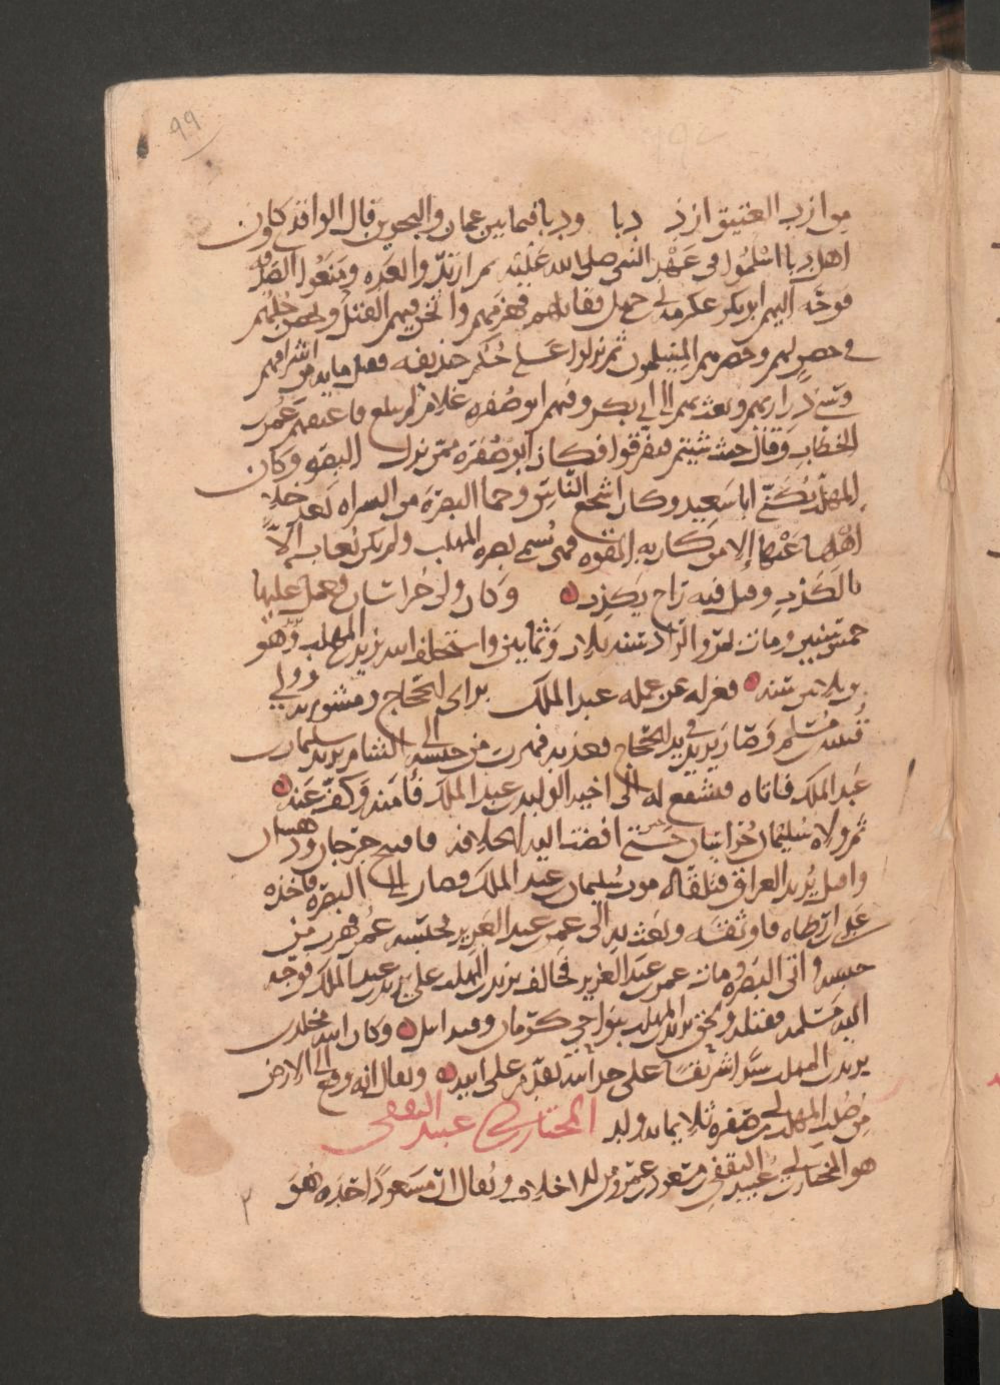 ٩٩
من ازد العتيق ازد دبا ودبا فيما بين عمان والبحرين قال الواقدي كان
اهل دبا اسلموا في عهد النبي صلى الله عليه ثم ارتدوا بعده ومنعوا الصدقه
فوجه اليهم ابو بكر عكرمه بن ابي جهل فقاتلهم فهزمهم واثخن فيهم القتل ولحق فلهم
في حصن لهم وحصرهم المسلمون ثم نزلوا على حكم حذيفه فقتل مايه من اشرافهم
وسبى ذراريهم وبعث بهم الى ابي بكر وفيهم ابو صفره غلام لم يبلغ فاعتقهم عمر بن
الخطاب وقال حيث شيتم فتفرقوا فكان ابو صفره ممن نزل البصره وكان
المهلب يكنى ابا سعيد وكان اشجع الناس وحما البصره من الشراه بعد جلاء
اهلها عنها الا من كان به القوه فهي تسمى بصره المهلب ولم يكن يعاب الا
بالكذب وقيل فيه راح يكذب وكان ولي خراسان فعمل عليها
خمس سنين ومات بمرو الروذ سنه ثلاث وثمانين واستخلف ابنه يزيد بن المهلب وهو
بن ثلاثين سنه فعزله عن عمله عبد الملك براى الحجاج ومشورته وولي
قتيبه بن مسلم وصار يزيد في يد الحجاج فعذبه فهرب من حبسه الى الشام يريد سليمان بن
عبد الملك فاتاه فشفع له الى اخيه الوليد بن عبد الملك فامنه وكف عنه
ثم ولاه سليمان خراسان حين افضت اليه الخلافه فافتتح جرجان ودهستان
واقبل يريد العراق فتلقاه موت سليمان بن عبد الملك فصار الى البصره فاخذه
عدي بن ارطاه فاوثقه وبعث به الى عمر بن عبد العزيز فحبسه عمر فهرب من
حبسه واتى البصره ومات عمر بن عبد العزيز فخالف يزيد بن المهلب على يزيد بن عبد الملك فوجه
اليه مسلمه فقتله ولحق بنو المهلب بنواحي كرمان وقندابيل وكان ابنه مخلد بن
يزيد بن المهلب سيدا شريفا على حداثته يقدم على ابيه ويقال انه وقع الى الارض
من صلب المهلب بن ابي صفره ثلاثمايه ولد المختار بن ابي عبيد الثقفي
هو المختار بن ابي عبيد الثقفي بن مسعود بن عمرو من الاحلاف ويقال ان مسعودا جده هو